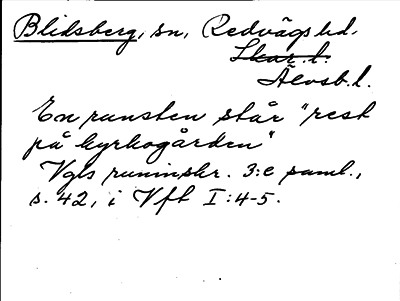 Blidsberg, sn, Redvägs hd,
Skar. l.
Älvsb. l.
En runsten står "rest
på kyrkogården"
Vgls runinskr. 3:e saml.,
s. 42, i Vft I:4-5.